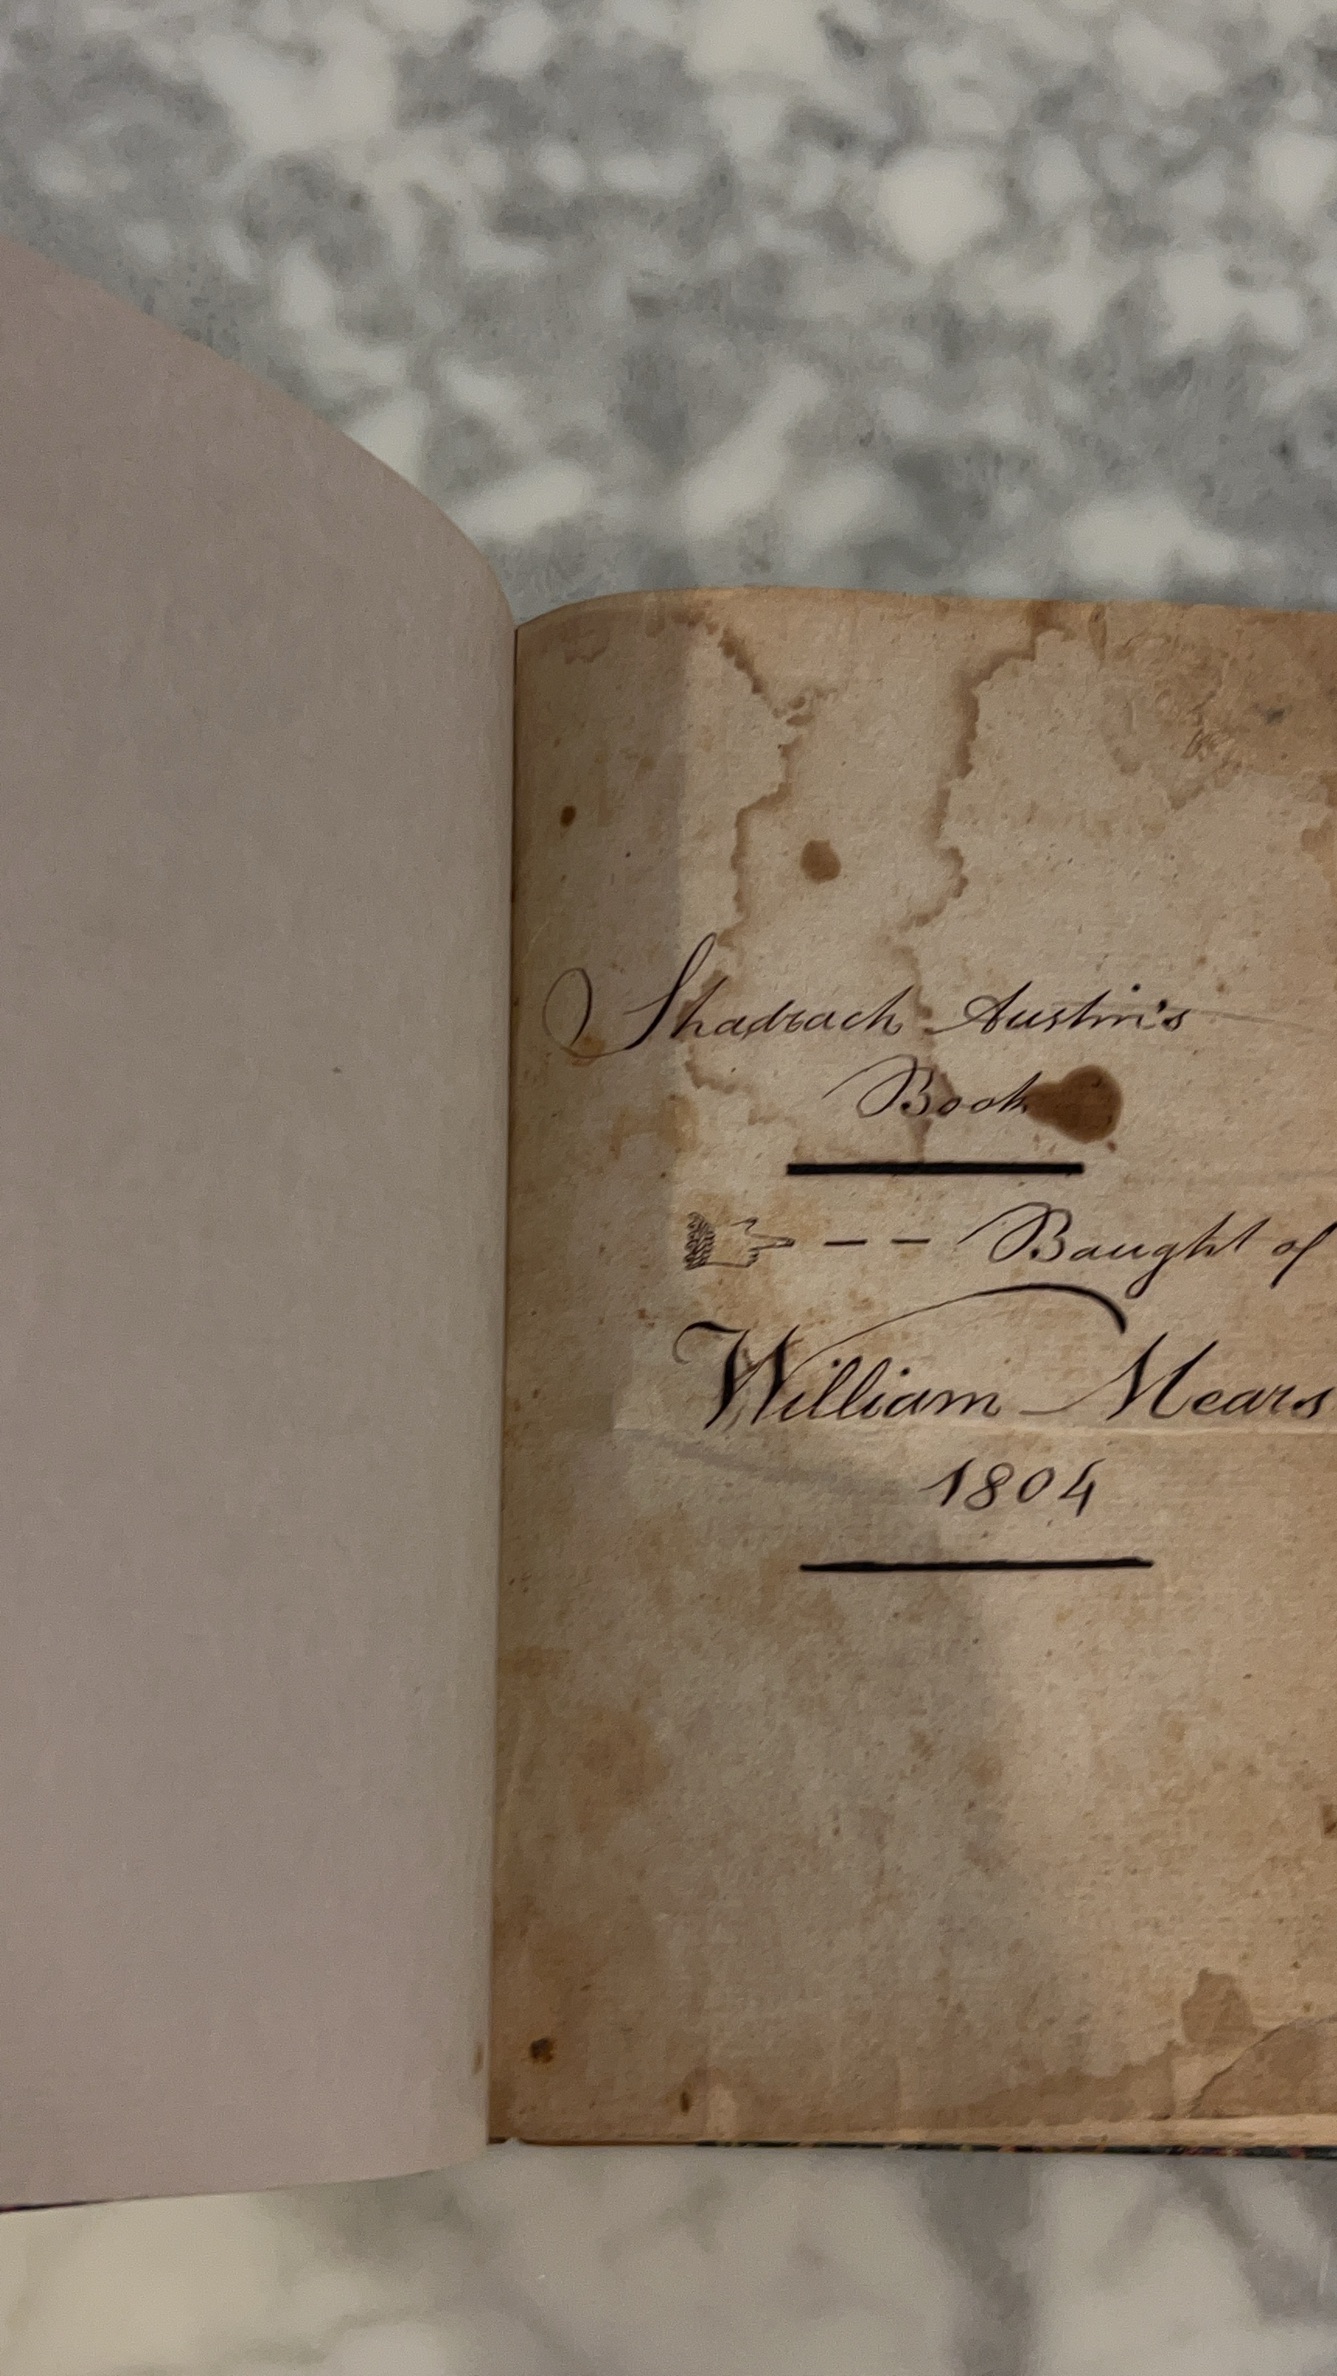 Shadrach Austin's
Book
☞ - - - Baught of
William Mears
1804